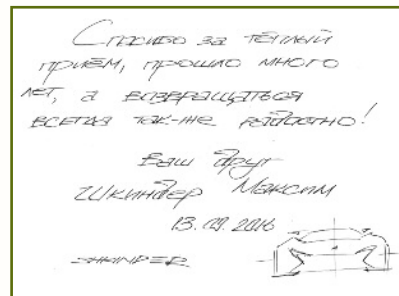 Спасибо за тёплый
приём, прошло много
лет, а возвращаться
всегда так-же радостно!
Ваш друг
Шкиндер Максим
13.09.2016
SHKINDER